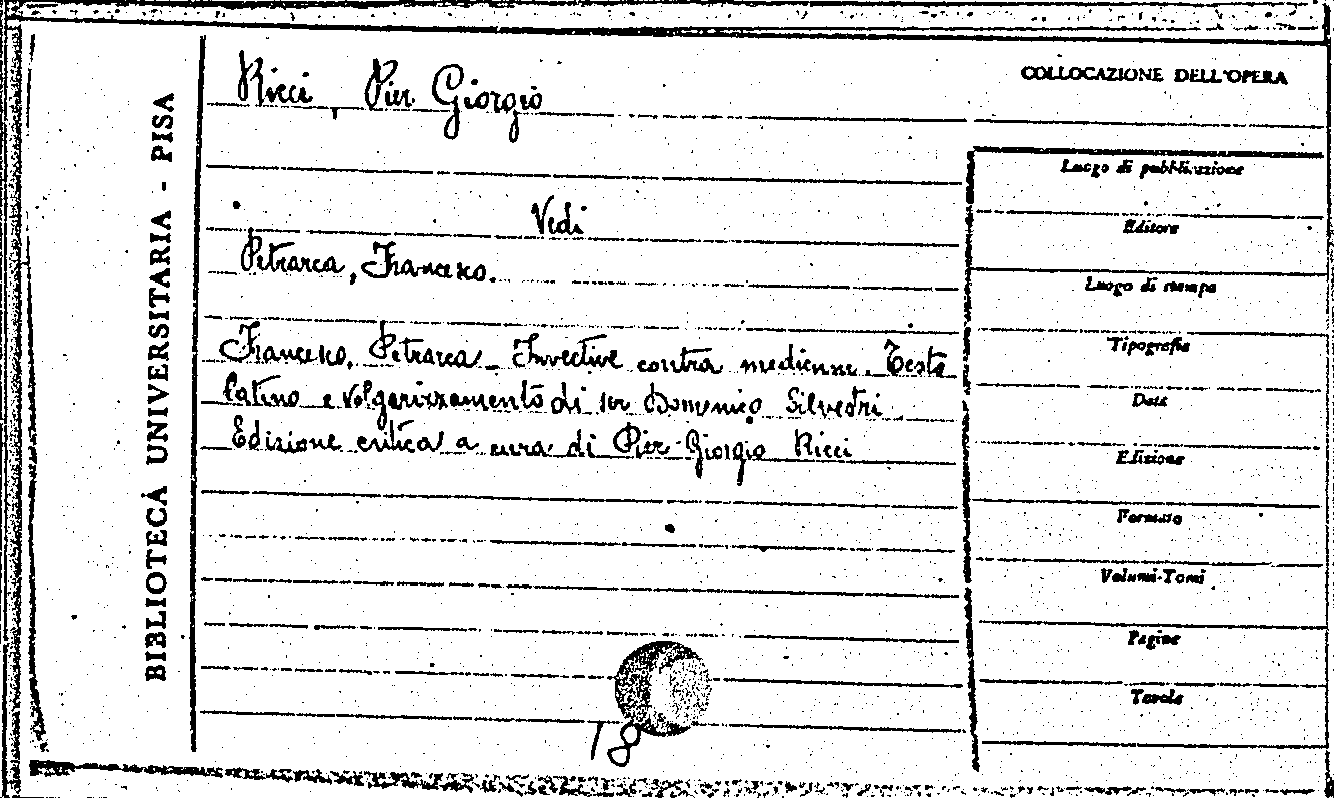 BIBLIOTECA UNIVERSITARIA - PISA
Ricci, Pier Giorgio
Vedi
Petrarca, Francesco.
Francesco, Petrarca - Invective contra medicum. Testo
latino e volgarizzamento di ser Domenico Silvestri
Edizione critica a cura di Pier Giorgio Ricci
18
COLLOCAZIONE DELL'OPERA
Luogo di pubblicazione
Editore
Luogo di stampa
Tipografia
Data
Edizione
Formato
Volumi-Tomi
Pagine
Tavole